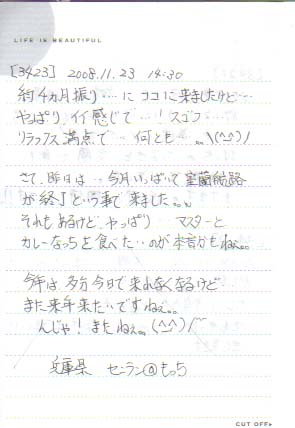 LIFE IS BEAUTIFUL
[3423] 2008.11.23 14:30
約4ヵ月振り‥‥にココに来ましたけど…
やっぱり、イイ感じで…！スゴク
リラックス満点で 何とも…。。\(^-^)/
さて、昨日は…今月いっぱいで室蘭航路
が終了という事で来ました。。。
それもあるけど、やっぱり マスターと
カレーなっちを食べた‥のが本音かもねぇ。。
今年は、多分今日で来れなくなるけど
また来年来たいですねぇ。。
んじゃ！またねぇ。。(^-^)/~~
兵庫県 セーラン@もっち
CUT OFF▸